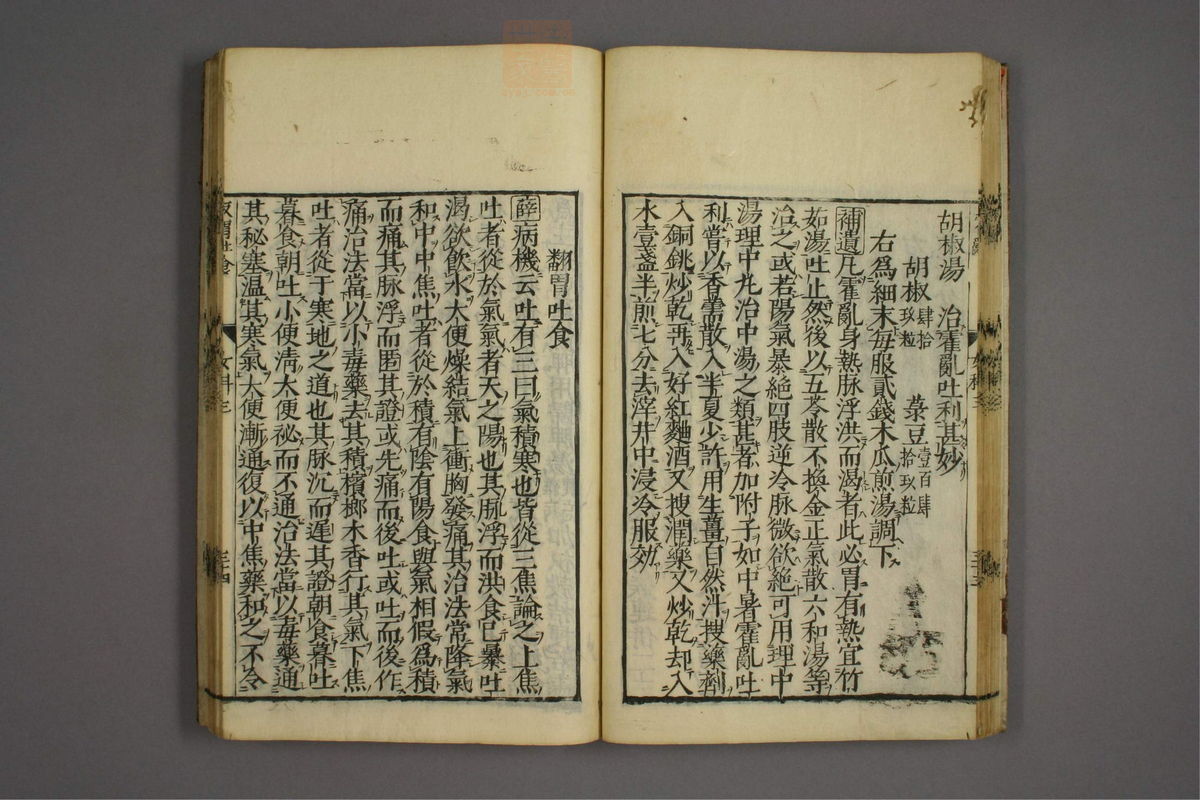 胡椒湯　治霍亂吐利甚妙
胡椒肆拾玖粒　菉豆壹百肆拾玖粒
右爲細末毎服貳錢木瓜煎湯調下
補遺凡霍亂身熱脉浮洪而渴者此必胃有熱宜竹
茹湯吐止然後以五苓散不換金正氣散六和湯等
治之或若陽氣暴絶四肢逆冷脉微欲絶可用理中
湯理中丸治中湯之類甚者加附子如中暑霍亂吐
利嘗以香薷散入半夏少許用生薑自然汁搜藥劑
入銅銚炒乾再入好紅麯酒又搜潤藥又炒乾却入
水壹盞半煎七分去滓井中浸冷服効
翻胃吐食
薛病機云吐有三曰氣積寒也皆從三焦論之上焦
吐者從於氣氣者天之陽也其脉浮而洪食已暴吐
渴欲飲水大便燥結氣上衝胸發痛其治法常降氣
和中中焦吐者從於積有陰有陽食與氣相假爲積
而痛其脉浮而匿其證或先痛而後吐或吐而後作
痛治法當以小毒藥去其積檳榔木香行其氣下焦
吐者從于寒地之道也其脉沉而遲其證朝食暮吐
暮食朝吐小便淸大便祕而不通治法當以毒藥通
其秘塞温其寒氣大便漸通復以中焦藥和之不令